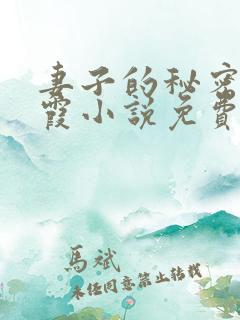 妻子的秘密
霞小说免費
馬斌
未经同意禁止转载